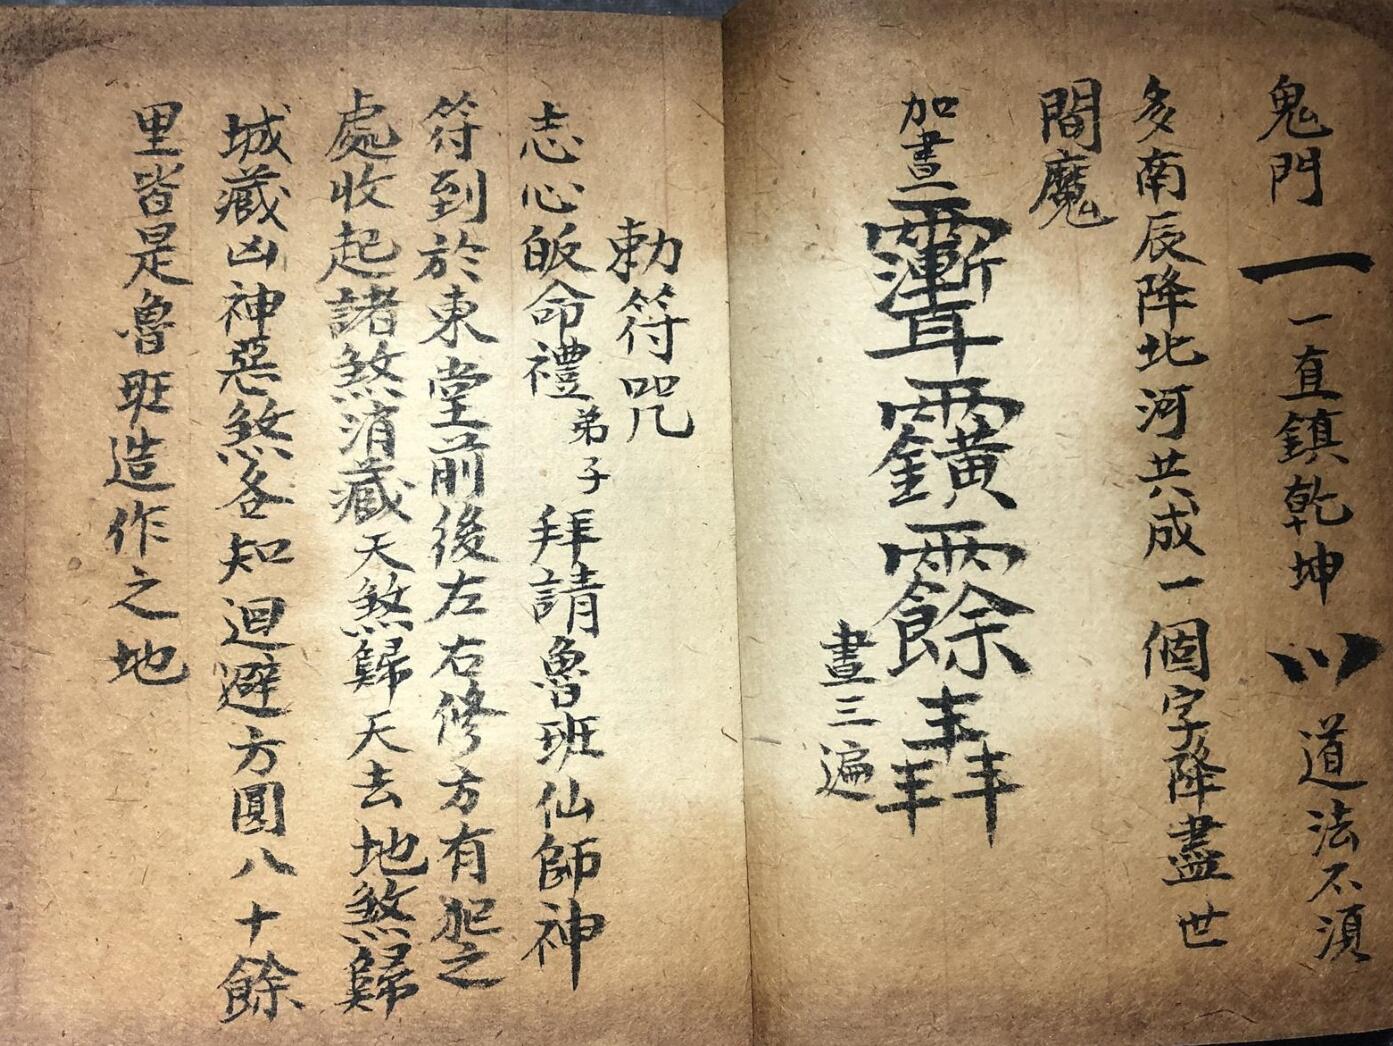 鬼門一一直鎮乾坤 道法不須
多南辰降北河共成一個字降盡世
間魔
加書二
畫三遍
勅符咒
志心皈命禮弟子拜請魯班仙師神
符到於東堂前後左右修方有犯之
處收起諸煞消藏天煞歸天去地煞歸
城藏凶神惡煞各知迴避方圓八十餘
里皆是魯班造作之地